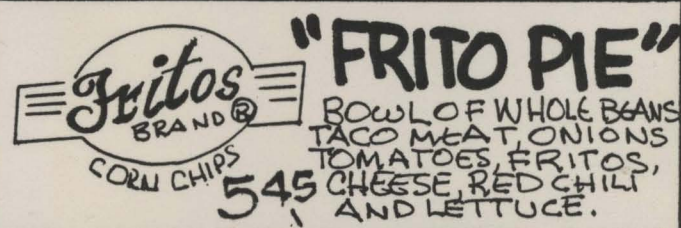 Fritos
BRAND ®
CORN CHIPS
"FRITO PIE"
BOWL OF WHOLE BEANS
TACO MEAT, ONIONS
TOMATOES, FRITOS,
CHEESE, RED CHILI
AND LETTUCE.
545